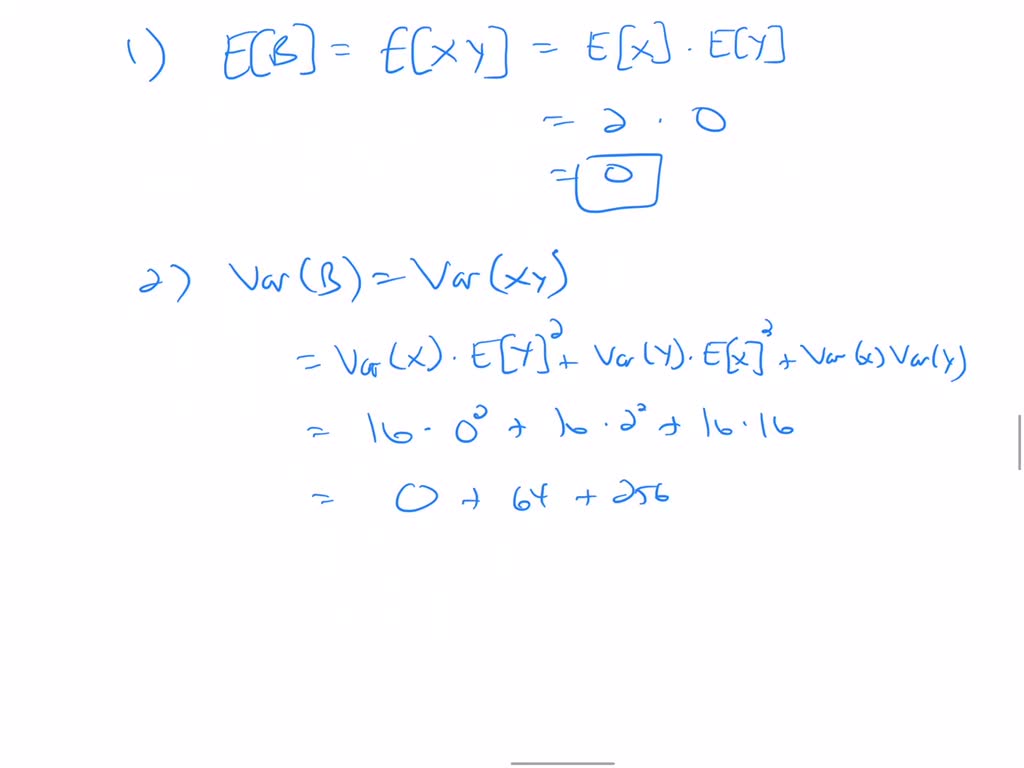 1) E[B] = E[XY] = E[X] · E[Y]
= 2 · 0
= 0
2) Var(B) = Var(XY)
= Var(X) · E[Y]² + Var(Y) · E[X]² + Var(X) Var(Y)
= 16 · 0² + 16 · 2² + 16 · 16
= 0 + 64 + 256